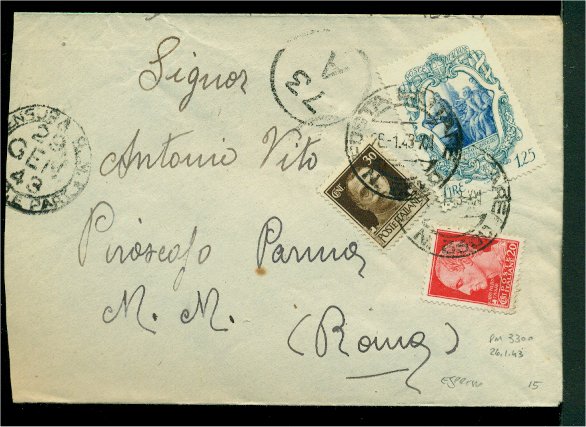 73
A
Signor
Antonio Vito
Piroscafo Parma
M. M.
(Roma)
CENSURA
GEN
43
POSTE ITALIANE
30
LIRE
1.25
POSTE ITALIANE
20
PM 3300
26.1.43
15